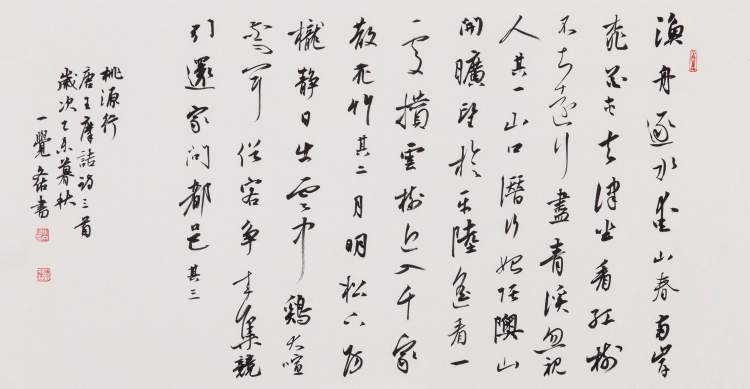 漁舟逐水愛山春兩岸
桃花夾去津坐看紅樹
不知遠行盡青溪忽視
人其一山口潛行始隈隩山
開曠望旋平陸遙看一
處攢雲樹近入千家
散花竹其二月明松下房
櫳靜日出雲中鷄犬喧
驚聞俗客爭來集競
引還家問都邑其三
桃源行
唐王摩詰詩三首
歲次乙未暮秋
一覺書